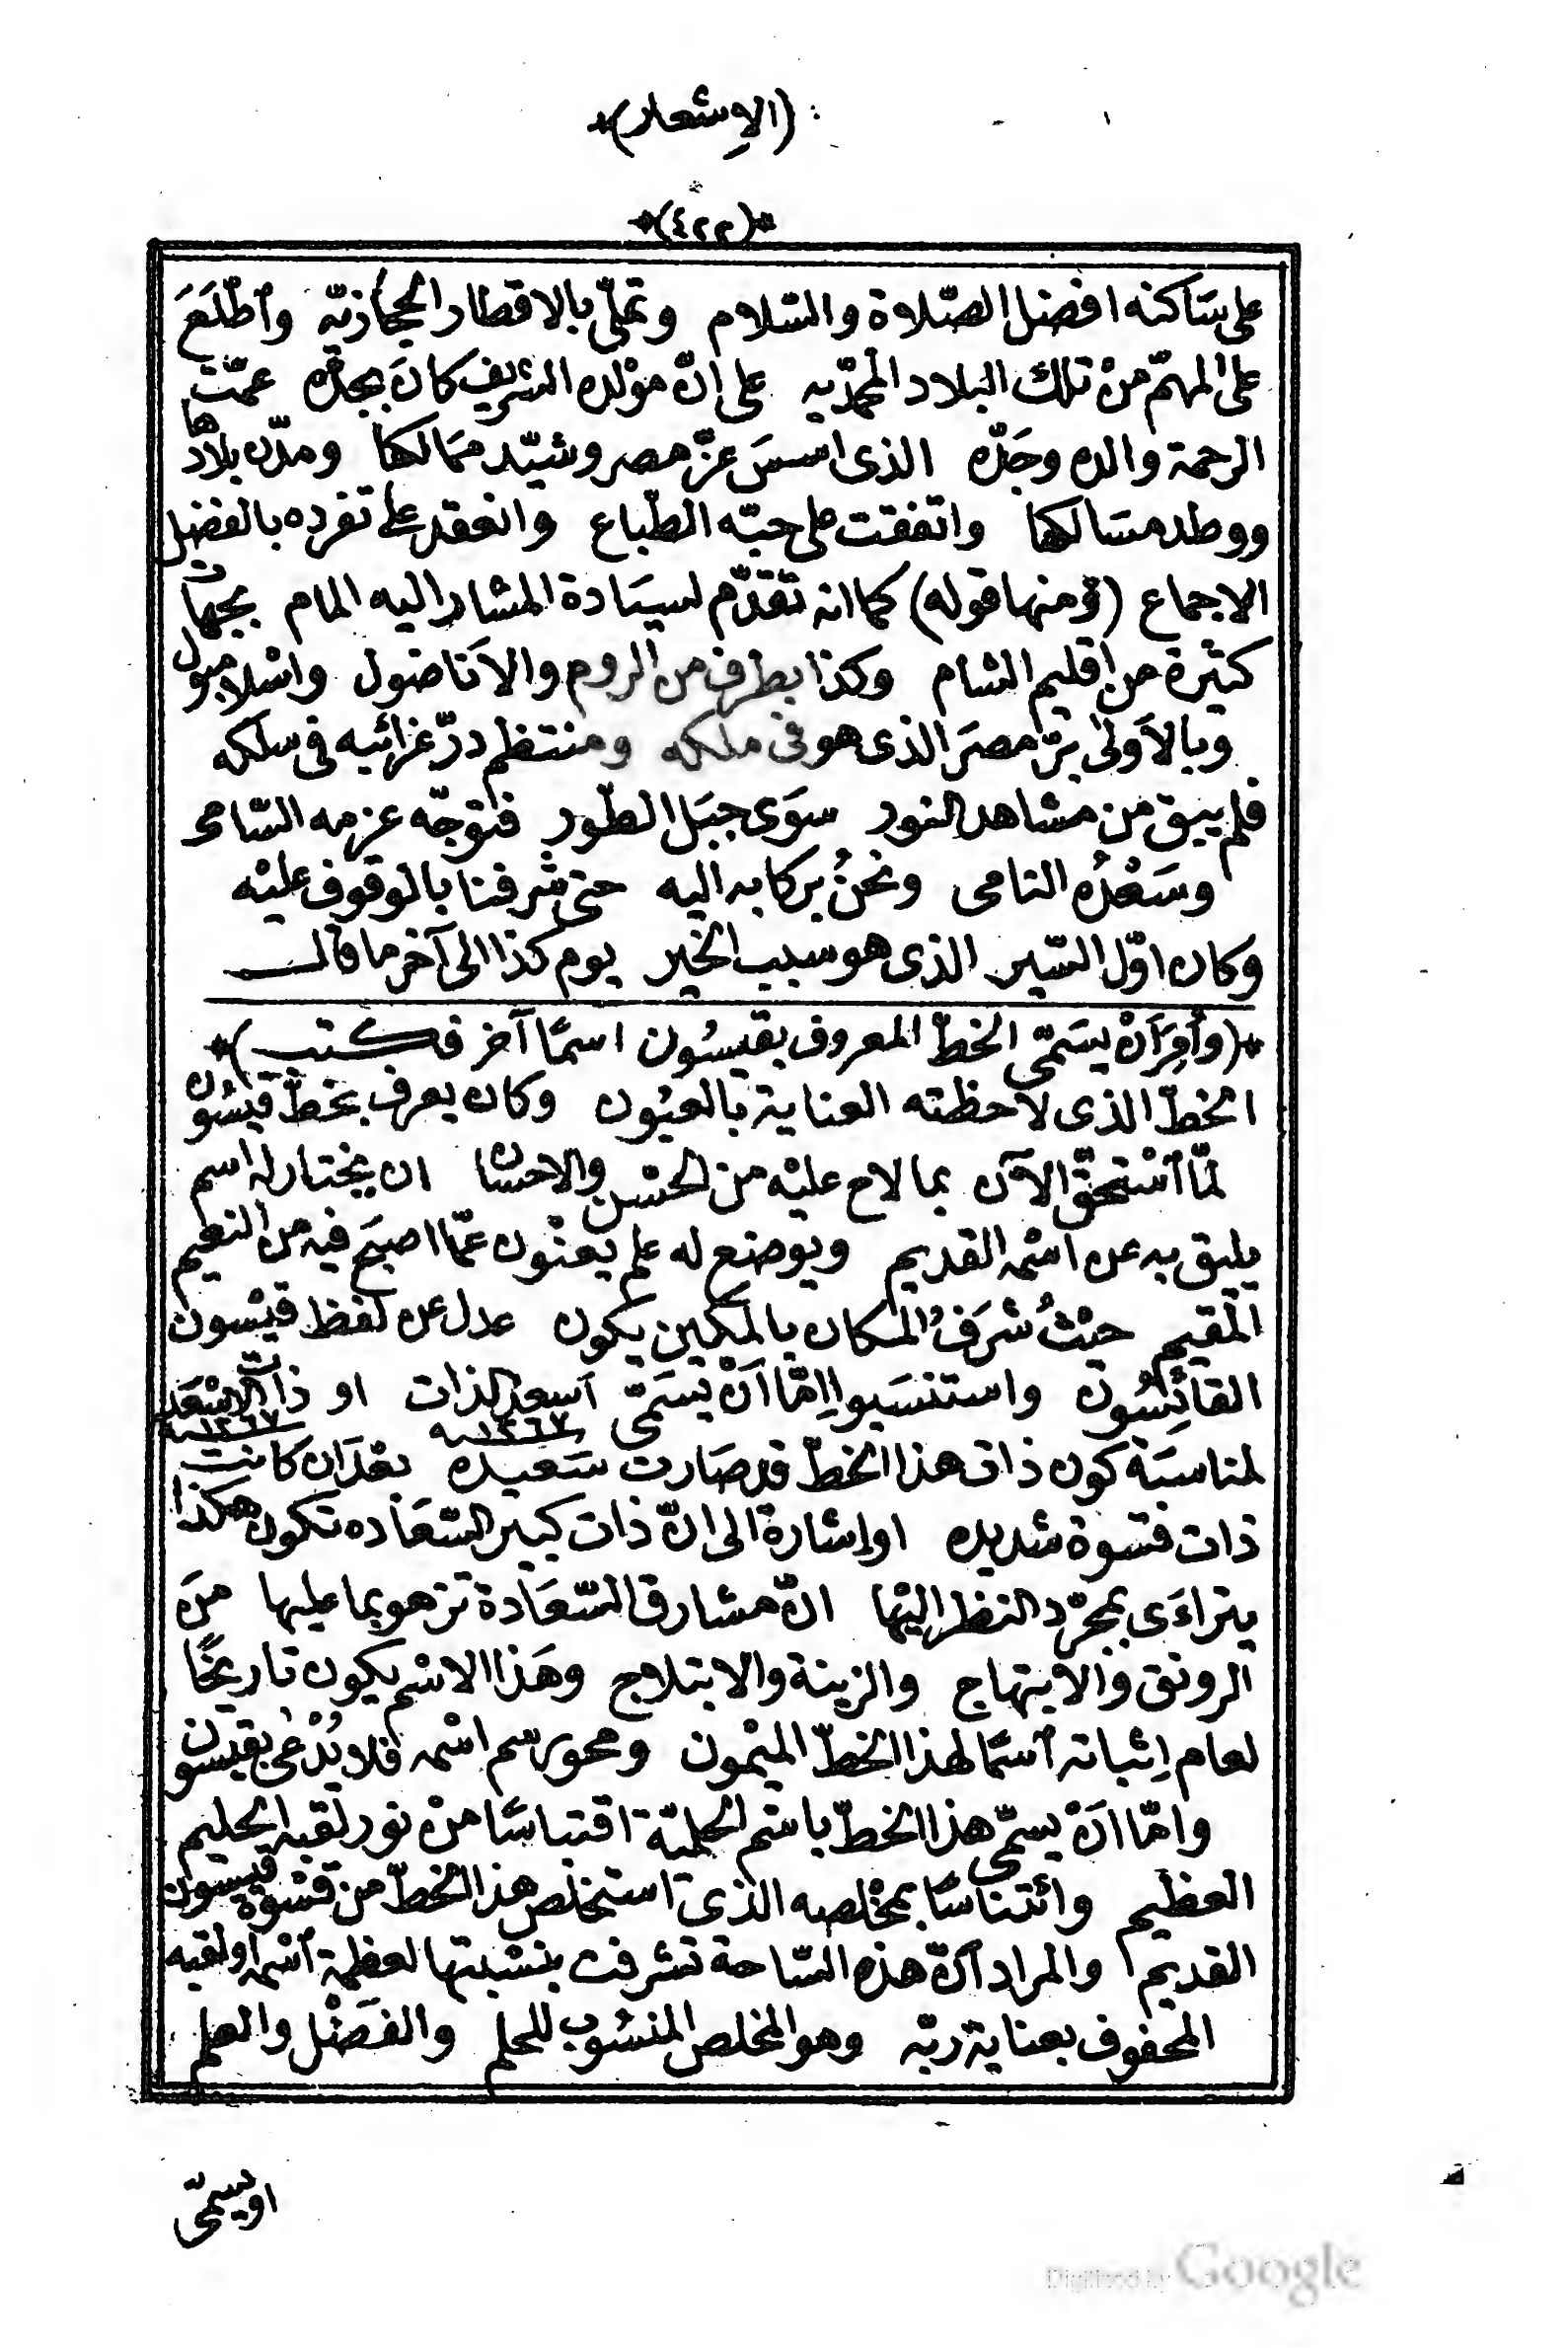 (الإشعار)
(٤٢٢)
على ساكنه افضل الصّلاة والسّلام وتملّى بالاقطار الحجازيّه وٱطّلَعَ
على المهمّ منْ تلك البلاد المحمديّه على انّ موْلده الشريف كانَ بجدّه عمّت
الرحمة والده وجَدّه الذى اسسَ عزّ مصر وشيّد ممَالكها ومدّن بلادها
ووطد مسَالكها واتفقت على حبّه الطّباع وانعقد على تفرده بالفضل
الاجماع (ومنها قوله) كما انه تقدّم لسيَادة المشار اليه المام بجهات
كثيرة من اقليم الشام وكذا بطرف من الروم والاَناضول واسْلامبول
وبالاَولى برّ مصرَ الذى هو فى ملكه ومنتظم درّ غرائبه فى سلكه
فلم يبق من مشاهد النور سوَى جبَل الطّور فتوجّه عزمه السّامى
وسَعْدُه النامى ونحنُ بركابه اليه حتى شرفنا بالوقوف عليْه
وكان اوّل السّير الذى هو سبب الخير يوم كذا الى آخر ما قال
(وأمِرَ اَنْ يسَمّى الخطّ المعروف بقيسُون اسمًا آخر فكتب)
الخطّ الذى لاحظته العناية بالعيُون وكان يعرف بخطّ قيسُون
لمّا ٱسْتحقّ الآن بما لاح عليْه من الحسْن والاحسَان ان يختار له اسم
يليق به عن اسْمه القديم ويوضع له علم يعنْون عمّا اصبَح فيه من النعيم
المقيم حيْثُ شرَفُ المكان بالمكين يكون عدل عن لفظ قيْسون
القائِسُون واستنسَبوا إمّا اَنْ يسَمّى ٱسعد الذات او ذات الاسْعَد
١٢٦٧ سنه ١٢٦٧ سنه
لمناسبَة كون ذات هذا الخطّ قد صَارت سَعيده بعْدَ ان كانت
ذات قسوة شديده او اشارة الى انّ ذات كبير السّعَاده تكون هكذا
يتراءَى بمجرّد النظر اليْها انّ مشارق السّعَادة تزهو بما عليها منَ
الرونق والابتهاج والزينة والابتلاج وهَذا الاسْم يكون تاريخًا
لعام إثباته ٱسمًا لهذا الخطّ الميْمون ومحو رسم اسْمه فلا يُدْعى بقيسون
وامّا اَنْ يسمّى هذا الخطّ باسْم الحلميّة اقتباسًا منْ نور لقبه الحليم
العظيم وائتناسًا بمخْلصه الذى استخلص هذا الخطّ من قسْوة قيسون
القديم والمراد اَنّ هذه السّاحة تشرفت بنسْبتها لعظمة ٱسْمه او لقبه
المحفوف بعناية ربّه وهو المخلص المنسُوب للحلم والفَضْل والعلم
او يسمّى
Digitized by Google